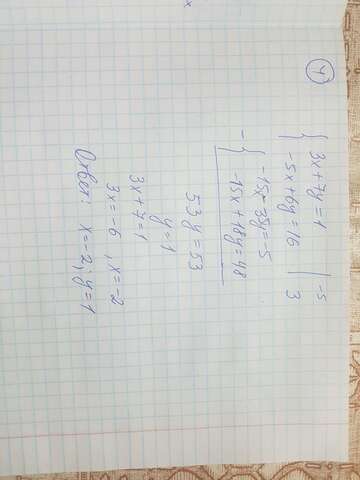 4
{ 3x+7y=1 | -5
{ -5x+6y=16 | 3
- { -15x-35y=-5
{ -15x+18y=48
53y=53
y=1
3x+7=1
3x=-6, x=-2
Ответ: x=-2; y=1